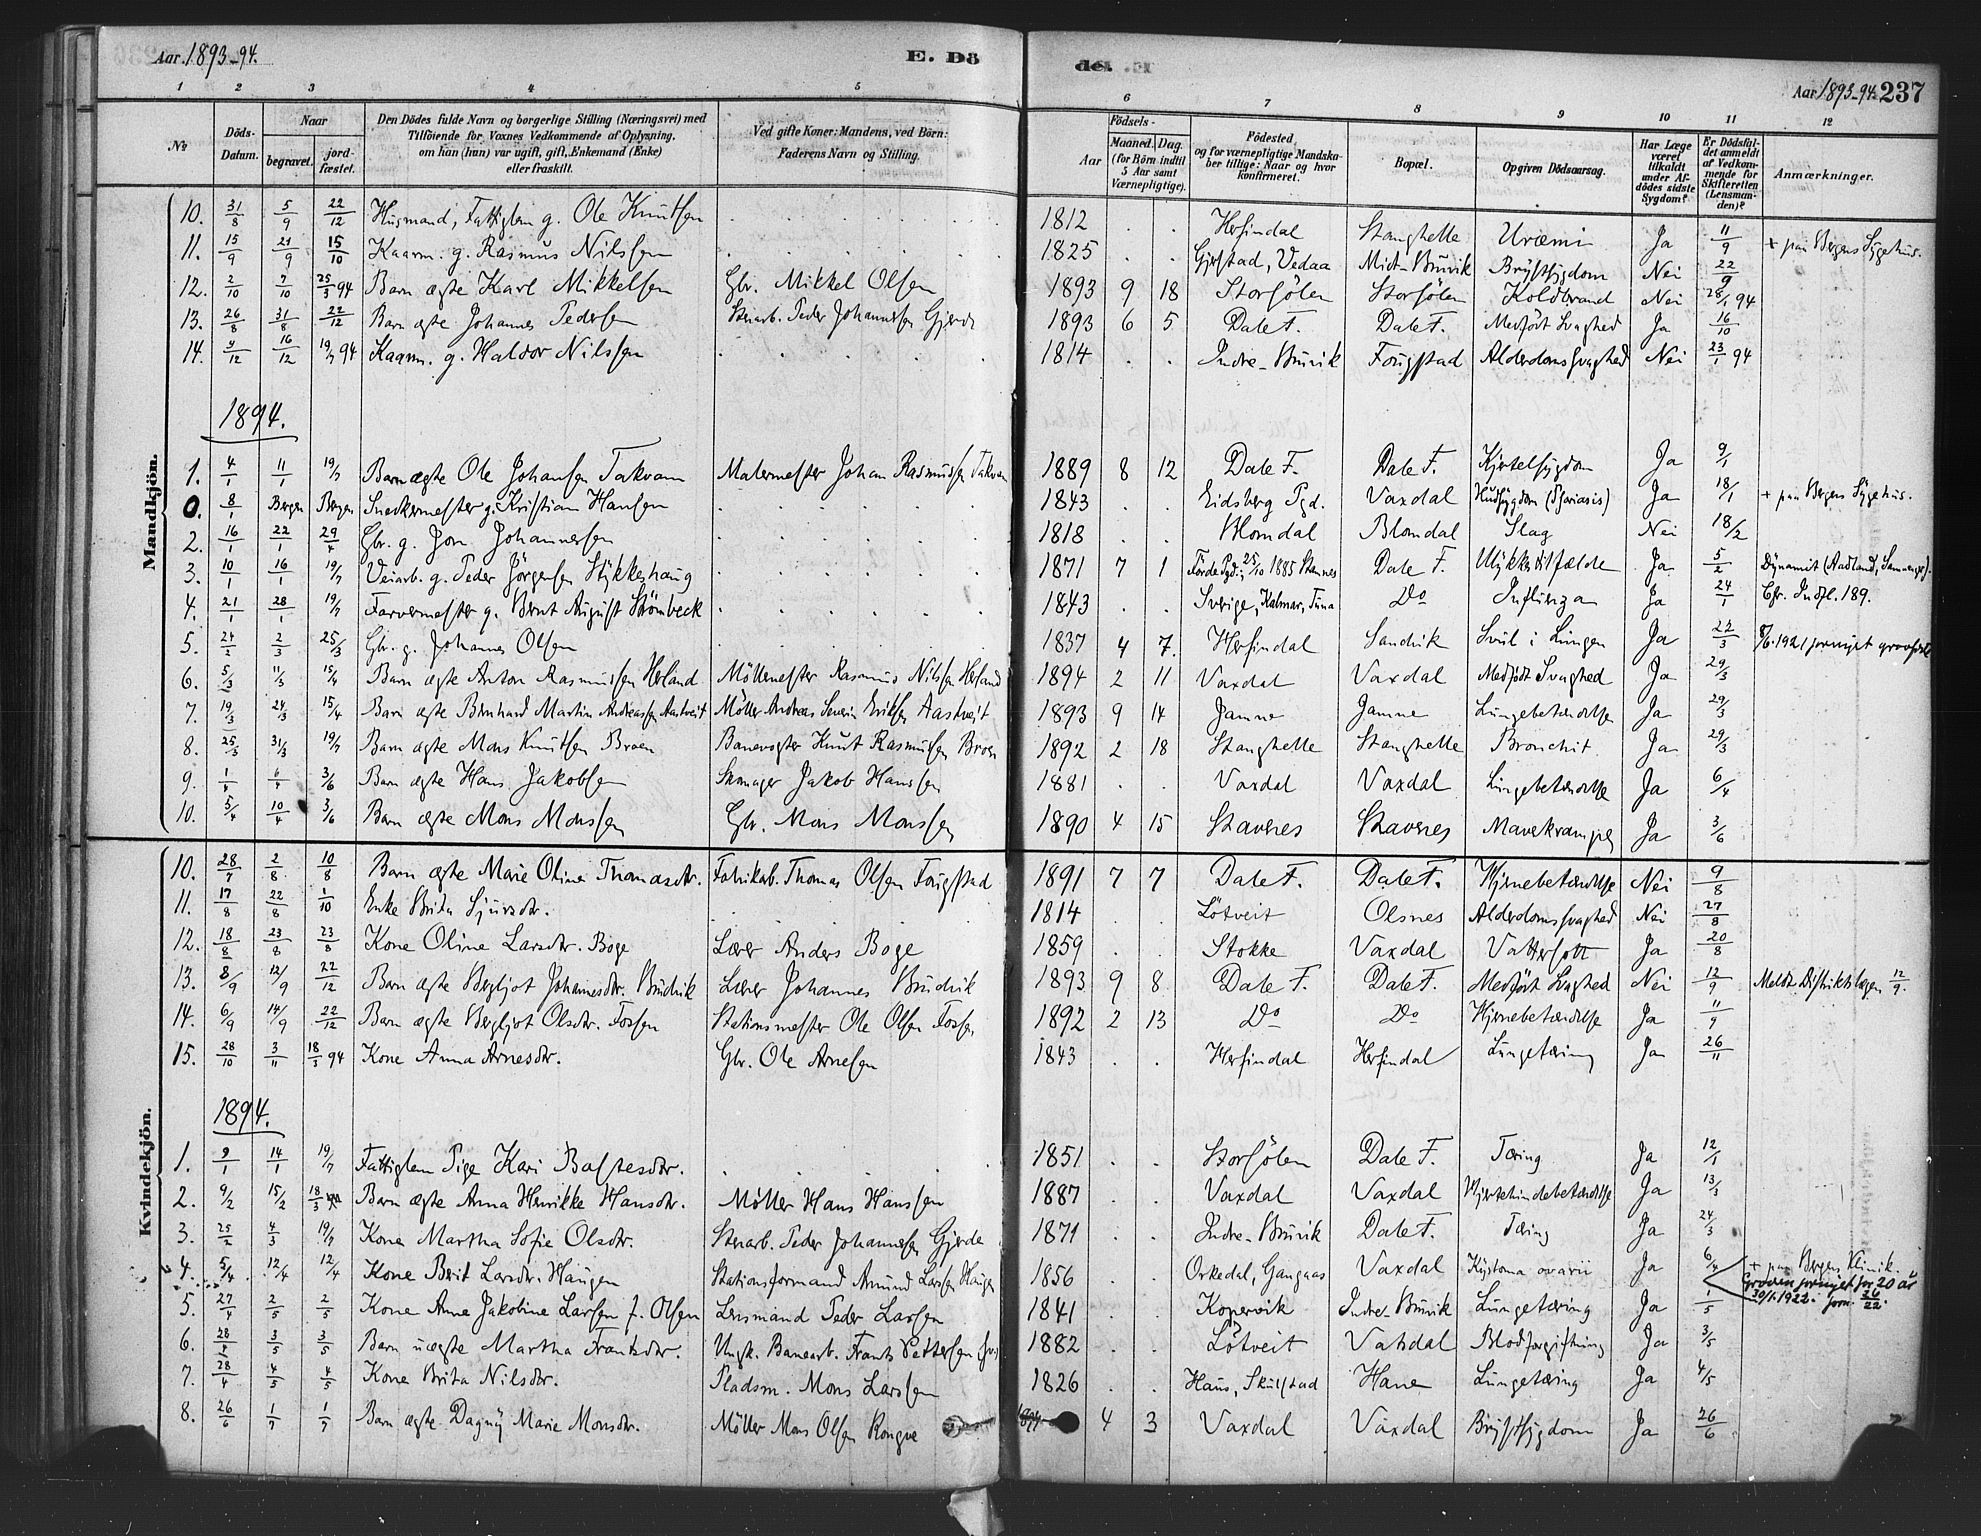 Aar 1893-94. E. Dö de. Aar 1893-94. 237
1 2 3 4 5 6 7 8 9 10 11 12
№ Döds-Datum. Naar begravet. jord-fæstet. Den Dödes fulde Navn og borgerlige Stilling (Næringsvei) med Tilföiende for Voxnes Vedkommende af Oplysning, om han (hun) var ugift, gift, Enkemand (Enke) eller fraskilt. Ved gifte Koner: Mandens, ved Börn: Faderens Navn og Stilling. Födsels- Aar Maaned. Dag. (for Börn indtil 5 Aar samt Værnepligtige). Födested, og for værnepligtige Mandskaber tillige: Naar og hvor konfirmeret. Bopæl. Opgiven Dödsaarsag. Har Læge været tilkaldt under Afdödes sidste Sygdom? Er Dödsfaldet anmeldt af Vedkommende for Skifteretten (Lensmanden)? Anmærkninger.
Mandkjön.
10. 31/8 5/9 22/12 Husmand, Fattiglem g. Ole Knutsen 1812 Herfindal Stanghelle Uræmi Ja 11/9 + paa Bergens Sygehus.
11. 15/9 21/9 15/10 Kaarm. g. Rasmus Nilssen 1825 Gjerstad, Vedaa Midt-Bruvik Brystsygdom Nei 22/9
12. 2/10 7/10 25/3 94 Barn ægte Karl Mikkelsen Gbr. Mikkel Olsen 1893 9 18 Storsölen Storsölen Koldbrand Nei 28/1 94
13. 26/8 31/8 22/12 Barn ægte Johannes Pedersen Stenarb. Peder Johannesen Gjerde 1893 6 5 Dale F. Dale F. Medfödt Svaghed Ja 16/10
14. 9/12 16/12 19/7 94 Kaarm. g. Haldor Nilssen 1814 Indre-Bruvik Fougstad Alderdomssvaghed Nei 23/1 94
1894.
1. 4/1 11/1 19/7 Barn ægte Ole Johansen Takvam Malermester Johan Rasmussen Takvam 1889 8 12 Dale F. Dale F. Kjertelsygdom Ja 9/1
0. 8/1 Bergen Bergen Snedkermester g. Kristian Hansen 1843 Eidsberg Pgd. Vaxdal Hudsygdom (Psoriasis) Ja 18/1 + paa Bergens Sygehus.
2. 16/1 22/1 29/4 Gbr. g. Jon Johannessen 1818 Blomdal Blomdal Slag Nei 18/2
3. 10/1 16/1 19/7 Veiarb. g. Peder Jörgensen Stykkeshaug 1871 7 1 Förde Pgd.; 25/10 1885 Dale F. Ulykkestilfælde Ja 5/2 Dynamit (Aadland, Samnanger).
4. 21/1 28/1 19/7 Farvermester g. Bernt August Strömbeck 1843 Sverige, Kalmar, Tuna Do Influenza Ja 24/1 Cfr. Indfl. 189.
5. 24/2 2/3 25/3 Gbr. g. Johannes Olsen 1837 4 7. Herfindal Sandvik Svul i Lungen Ja 22/3 8/6.1921 fornyet gravsted
6. 5/3 11/3 15/4 Barn ægte Anton Rasmussen Herland Möllemester Rasmus Nilsen Herland 1894 2 11 Vaxdal Vaxdal Medfödt Svaghed Ja 29/3
7. 19/3 24/3 15/4 Barn ægte Bernhard Martin Andreassen Aastveit Möller Andreas Severin Eriksen Aastveit 1893 9 14 Jamne Jamne Lungebetændelse Ja 29/3
8. 25/3 31/3 19/7 Barn ægte Mons Knutsen Broen Banevogter Knut Rasmussen Broen 1892 2 18 Stanghelle Stanghelle Bronchit Ja 29/3
9. 1/4 6/4 3/6 Barn ægte Hans Jakobsen Skomager Jakob Hanssen 1881 Vaxdal Vaxdal Lungebetændelse Ja 6/4
10. 5/4 10/4 3/6 Barn ægte Mons Monssen Gbr. Mons Monssen 1890 4 15 Stavenes Stavenes Mavekrampe Ja 3/6
Kvindekjön.
10. 28/7 2/8 10/8 Barn ægte Marie Oline Thomasdtr. Fabrikarb. Thomas Olsen Fougstad 1891 7 7 Dale F. Dale F. Hjernebetændelse Nei 9/8
11. 17/8 22/8 1/10 Enke Brita Sjursdtr. 1814 Lötveit Olsnes Alderdomssvaghed Nei 27/8
12. 18/8 23/8 23/8 Kone Oline Larsdtr. Boge Lærer Anders Boge 1859 Stokke Vaxdal Vattersott Ja 20/8
13. 8/9 12/9 22/12 Barn ægte Bergljot Johannesdtr. Brudvik Lærer Johannes Brudvik 1893 9 8 Dale F. Dale F. Medfödt Svaghed Nei 12/9 Meldt Distriktslægen 12/9.
14. 6/9 14/9 22/12 Barn ægte Bergljot Olsdtr. Fossen Stationsmester Ole Olsen Fossen 1892 2 13 Do Do Hjernebetændelse Ja 11/9
15. 28/10 3/11 18/3 94 Kone Anna Arnesdtr. Gbr. Ole Arnesen 1843 Herfindal Herfindal Lungetæring Ja 26/11
1894.
1. 9/1 14/1 19/7 Fattiglem Pige Kari Baltesdtr. 1851 Storsölen Dale F. Tæring Ja 12/1
2. 9/2 15/2 18/3 Barn ægte Anna Henrikke Hansdtr. Möller Hans Hanssen 1887 Vaxdal Vaxdal Hjertehindebetændelse Ja 13/3
3. 25/2 4/3 19/7 Kone Martha Sofie Olsdtr. Stenarb. Peder Johannesen Gjerde 1871 Indre-Bruvik Dale F. Tæring Ja 24/3
4. 5/4 12/4 12/4 Kone Berit Larsdtr. Haugen Stationsformand Amund Larsen Haugen 1856 Orkedal, Gangaas Vaxdal Kystoma ovarii Ja 6/4 + paa Bergens Klinik.
Graven fornyet for 20 år
30/1.1922. jorn. 36/22.
5. 27/4 2/5 2/5 Kone Anne Jakobine Larsen f. Olsen Lensmand Peder Larsen 1841 Kopervik Indre-Bruvik Lungetæring Ja 1/5
6. 28/4 3/5 3/5 Barn uægte Martha Frantsdtr. Ungk. Banearb. Frants Pettersen 1882 Lötveit Vaxdal Blodforgiftning Ja 3/5
7. 28/4 4/5 4/5 Kone Brita Nilsdtr. Pladsm. Mons Larssen 1826 Haus, Skulstad Hane Lungetæring Ja 4/5
8. 26/6 1/7 1/7 Barn ægte Dagny Marie Monsdtr. Möller Mons Olsen Rongve 1894 4 3 Vaxdal Vaxdal Brystsygdom Ja 26/6